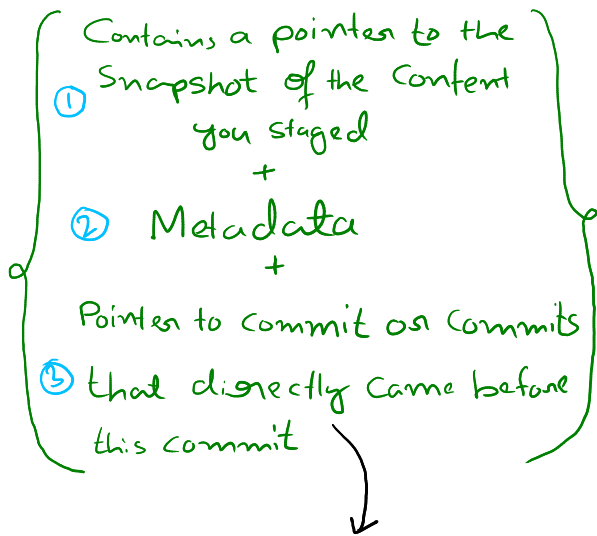 Contains a pointer to the
① Snapshot of the Content
you staged
+
② Metadata
+
Pointer to commit or commits
③ that directly came before
this commit